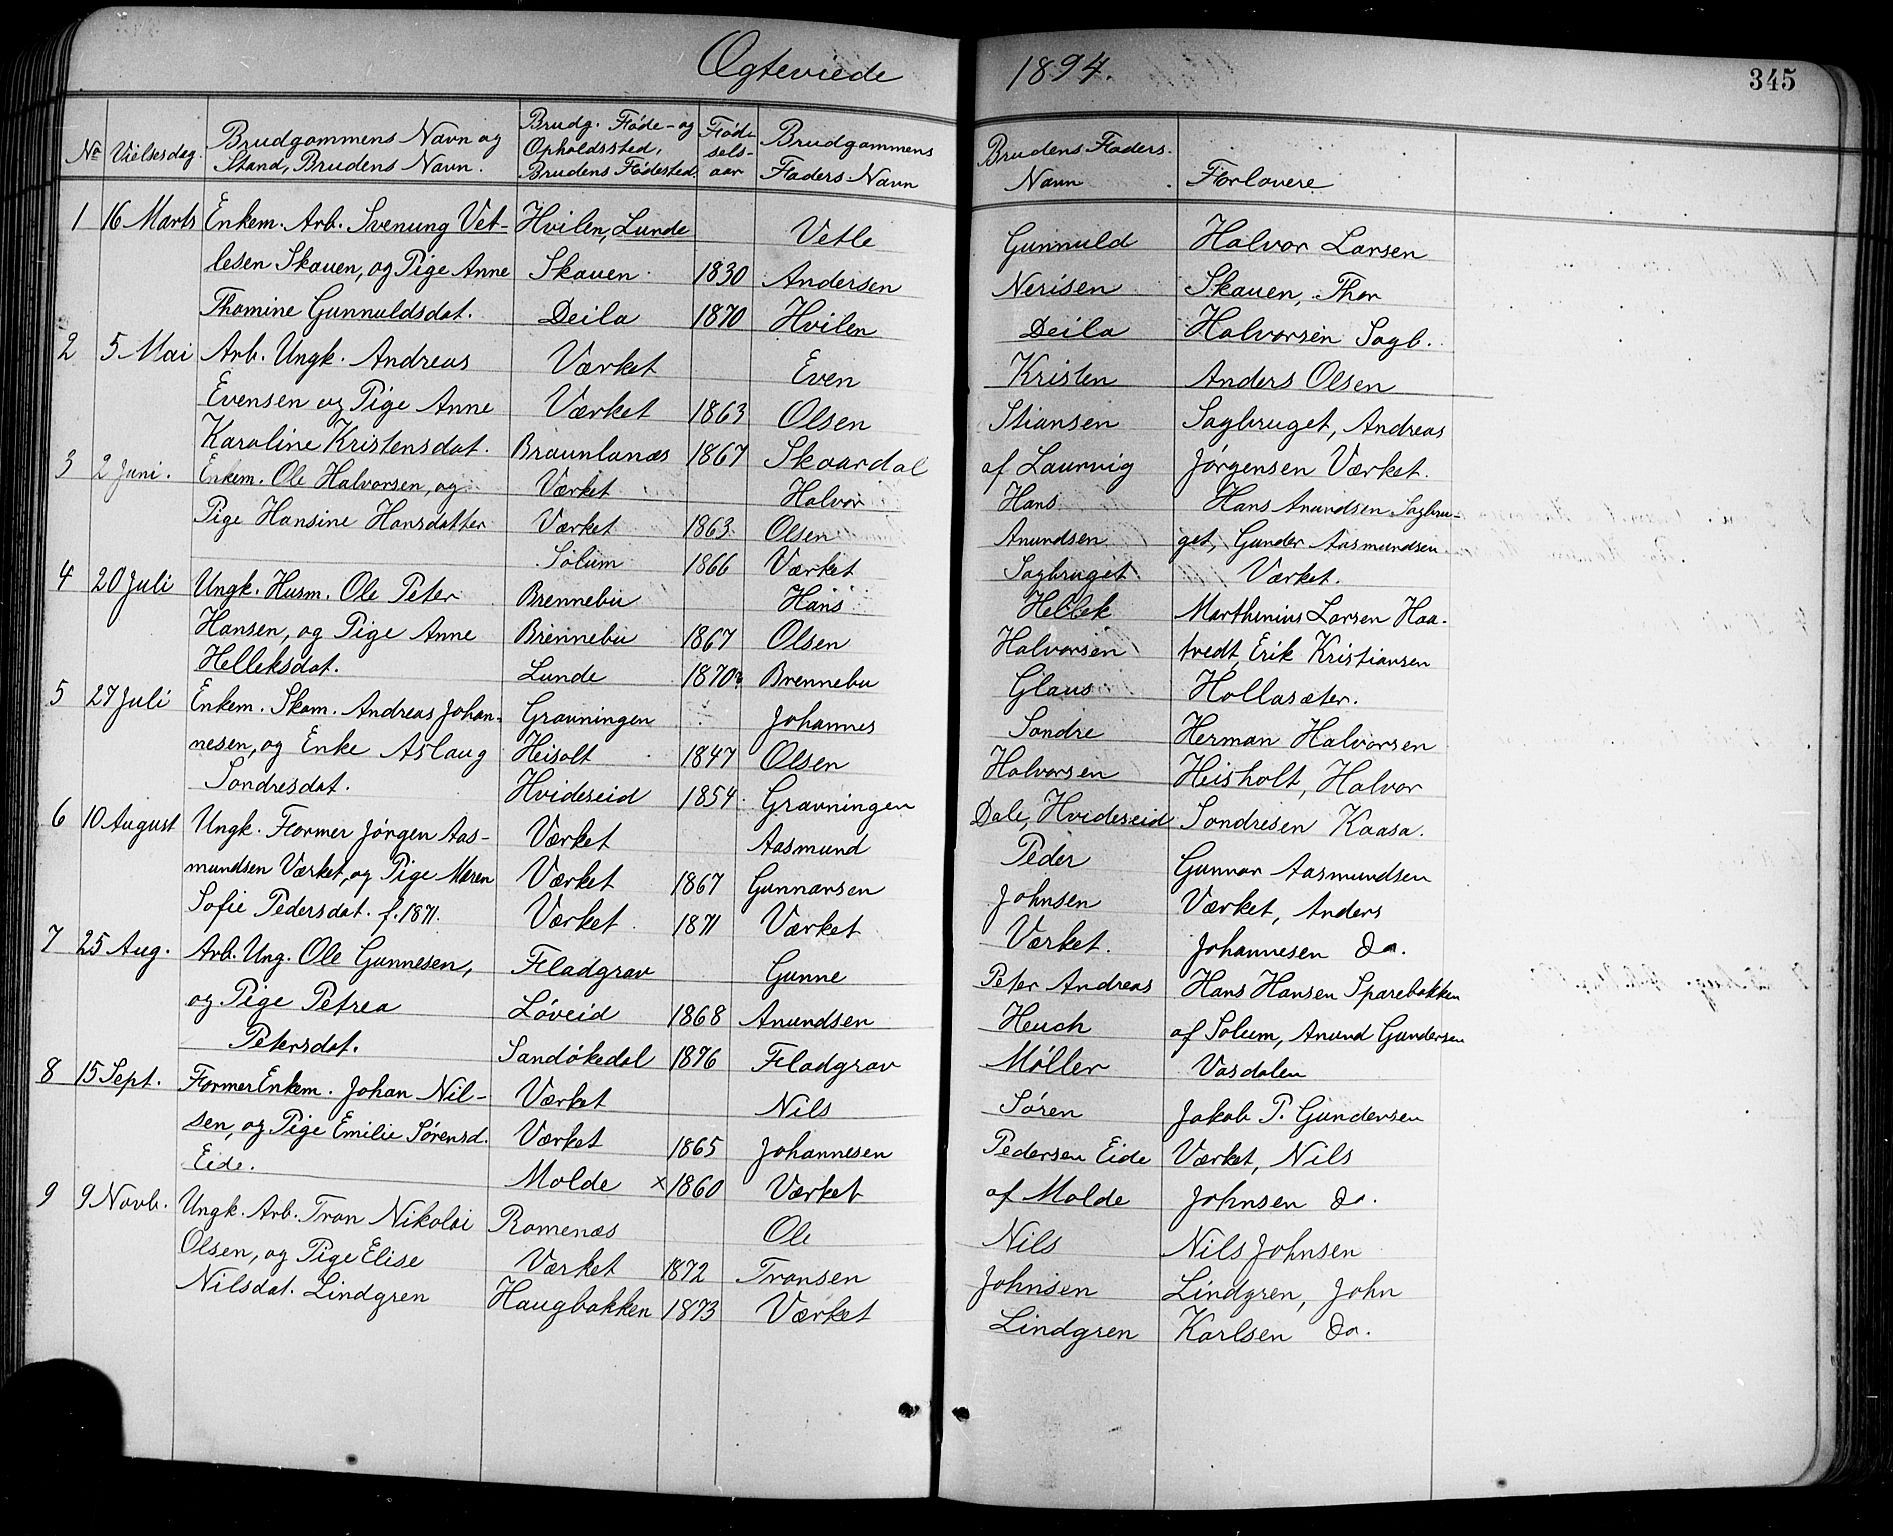 Ægteviede 1894. 345
Nº Vielsesdag. Brudgommens Navn og Stand, Brudens Navn. Brudg. Føde- og Opholdssted, Brudens Fødested. Fødselsaar Brudgommens Faders Navn Brudens Faders Navn Forlovere
1 16 Marts Enkem. Arb. Svenung Vet- Hvilen, Lunde Vetle Gunnuld Halvor Larsen
lesen Skauen, og Pige Anne Skauen. 1830 Andersen Nerisen Skauen, Thor
Thomine Gunnuldsdat. Deila 1870 Hvilen Deila Halvorsen Sagb.
2 5 Mai Arb. Ungk. Andreas Værket Even Kristen Anders Olsen
Evensen og Pige Anne Værket 1863 Olsen Stiansen Sagbruget, Andreas
Karoline Kristensdat. Braunlanæs 1867 Skaardal af Laurvig Jørgensen Værket.
3 2 Juni. Enkem. Ole Halvorsen, og Værket Halvor Hans Hans Anundsen Sagbru-
Pige Hansine Hansdatter Værket 1863. Olsen Anundsen get, Gunder Aasmundsen
Solum 1866 Værket Sagbruget Værket.
4 20 Juli Ungk. Husm. Ole Peter Brennebu Hans Hellek Marthinius Larsen Haa-
Hansen, og Pige Anne Brennebu 1867 Olsen Halvorsen tvedt, Erik Kristiansen
Helleksdat. Lunde 1870 Brennebu Glaus Hollasæter.
5 27 Juli Enkem. Skom. Andreas Johan- Gravningen Johannes Sondre Herman Halvorsen
nesen, og Enke Aslaug Heisolt 1847 Olsen Halvorsen Heisholt, Halvor
Sondresdat. Hvideseid 1854. Gravningen Dale, Hvideseid Sondresen Kaasa.
6 10 August Ungk. Former Jørgen Aas- Værket Aasmund Peder Gunnar Aasmundsen
mundsen Værket, og Pige Maren Værket 1867 Gunnarsen Johnsen Værket, Anders
Sofie Pedersdat. f. 1871. Værket 1871 Værket Værket. Johannesen Do.
7 25 Aug. Arb. Ung. Ole Gunnesen, Fladgrav Gunne Peter Andreas Hans Hansen Sparebakken
og Pige Petrea Løveid 1868 Anundsen Heuch af Solum, Anund Gundersen
Petersdat. Sandøkedal 1876 Fladgrav Møller Vasdalen
8 15 Sept. Former Enkem. Johan Nil- Værket Nils Søren Jakob P. Gundersen
sen, og Pige Emilie Sørensd. Værket 1865 Johannesen Pedersen Eide Værket, Nils
Eide. Molde × 1860 Værket af Molde Johnsen Do.
9 9 Novb. Ungk. Arb. Tron Nikolai Romenæs Ole Nils Nils Johnsen
Olsen, og Pige Elise Værket 1872 Tronsen Johnsen Lindgren, John
Nilsdat. Lindgren Haugbakken 1873 Værket Lindgren Karlsen Do.